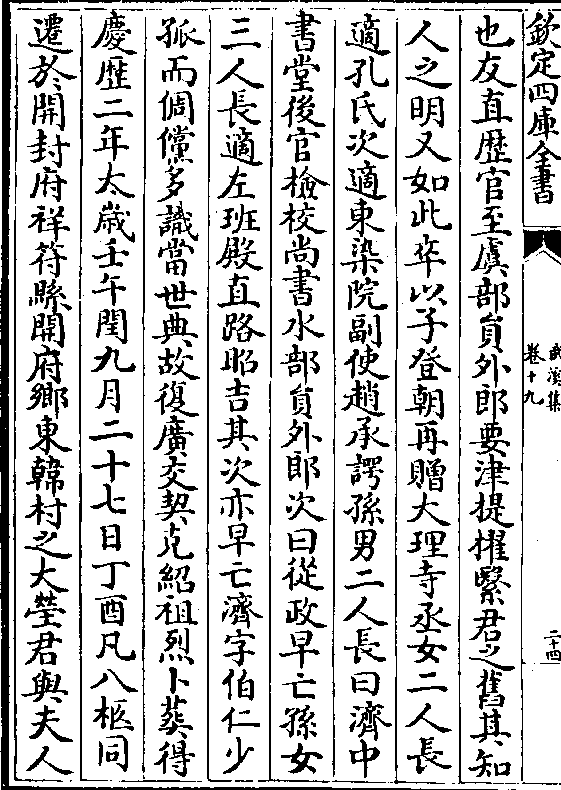 欽定四庫全書
武溪集
卷十九
二十四
也友直歴官至虞部員外郎要津提擢緊君之舊其知
人之明又如此卒以子登朝再贈大理寺丞女二人長
適孔氏次適東染院副使趙承諤孫男二人長曰濟中
書堂後官檢校尚書水部員外郎次曰從政早亡孫女
三人長適左班殿直路昭吉其次亦早亡濟字伯仁少
孤而倜儻多識當世典故復廣交契克紹祖烈卜葬得
慶歴二年太歳壬午閏九月二十七日丁酉凡八柩同
遷於開封府祥符縣開府鄉東韓村之大塋君與夫人